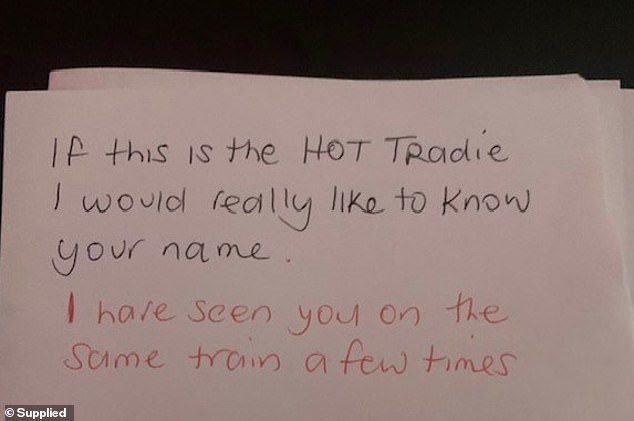 If this is the HOT TRadie
I would really like to know
your name.
I have seen you on the
same train a few times
© Supplied